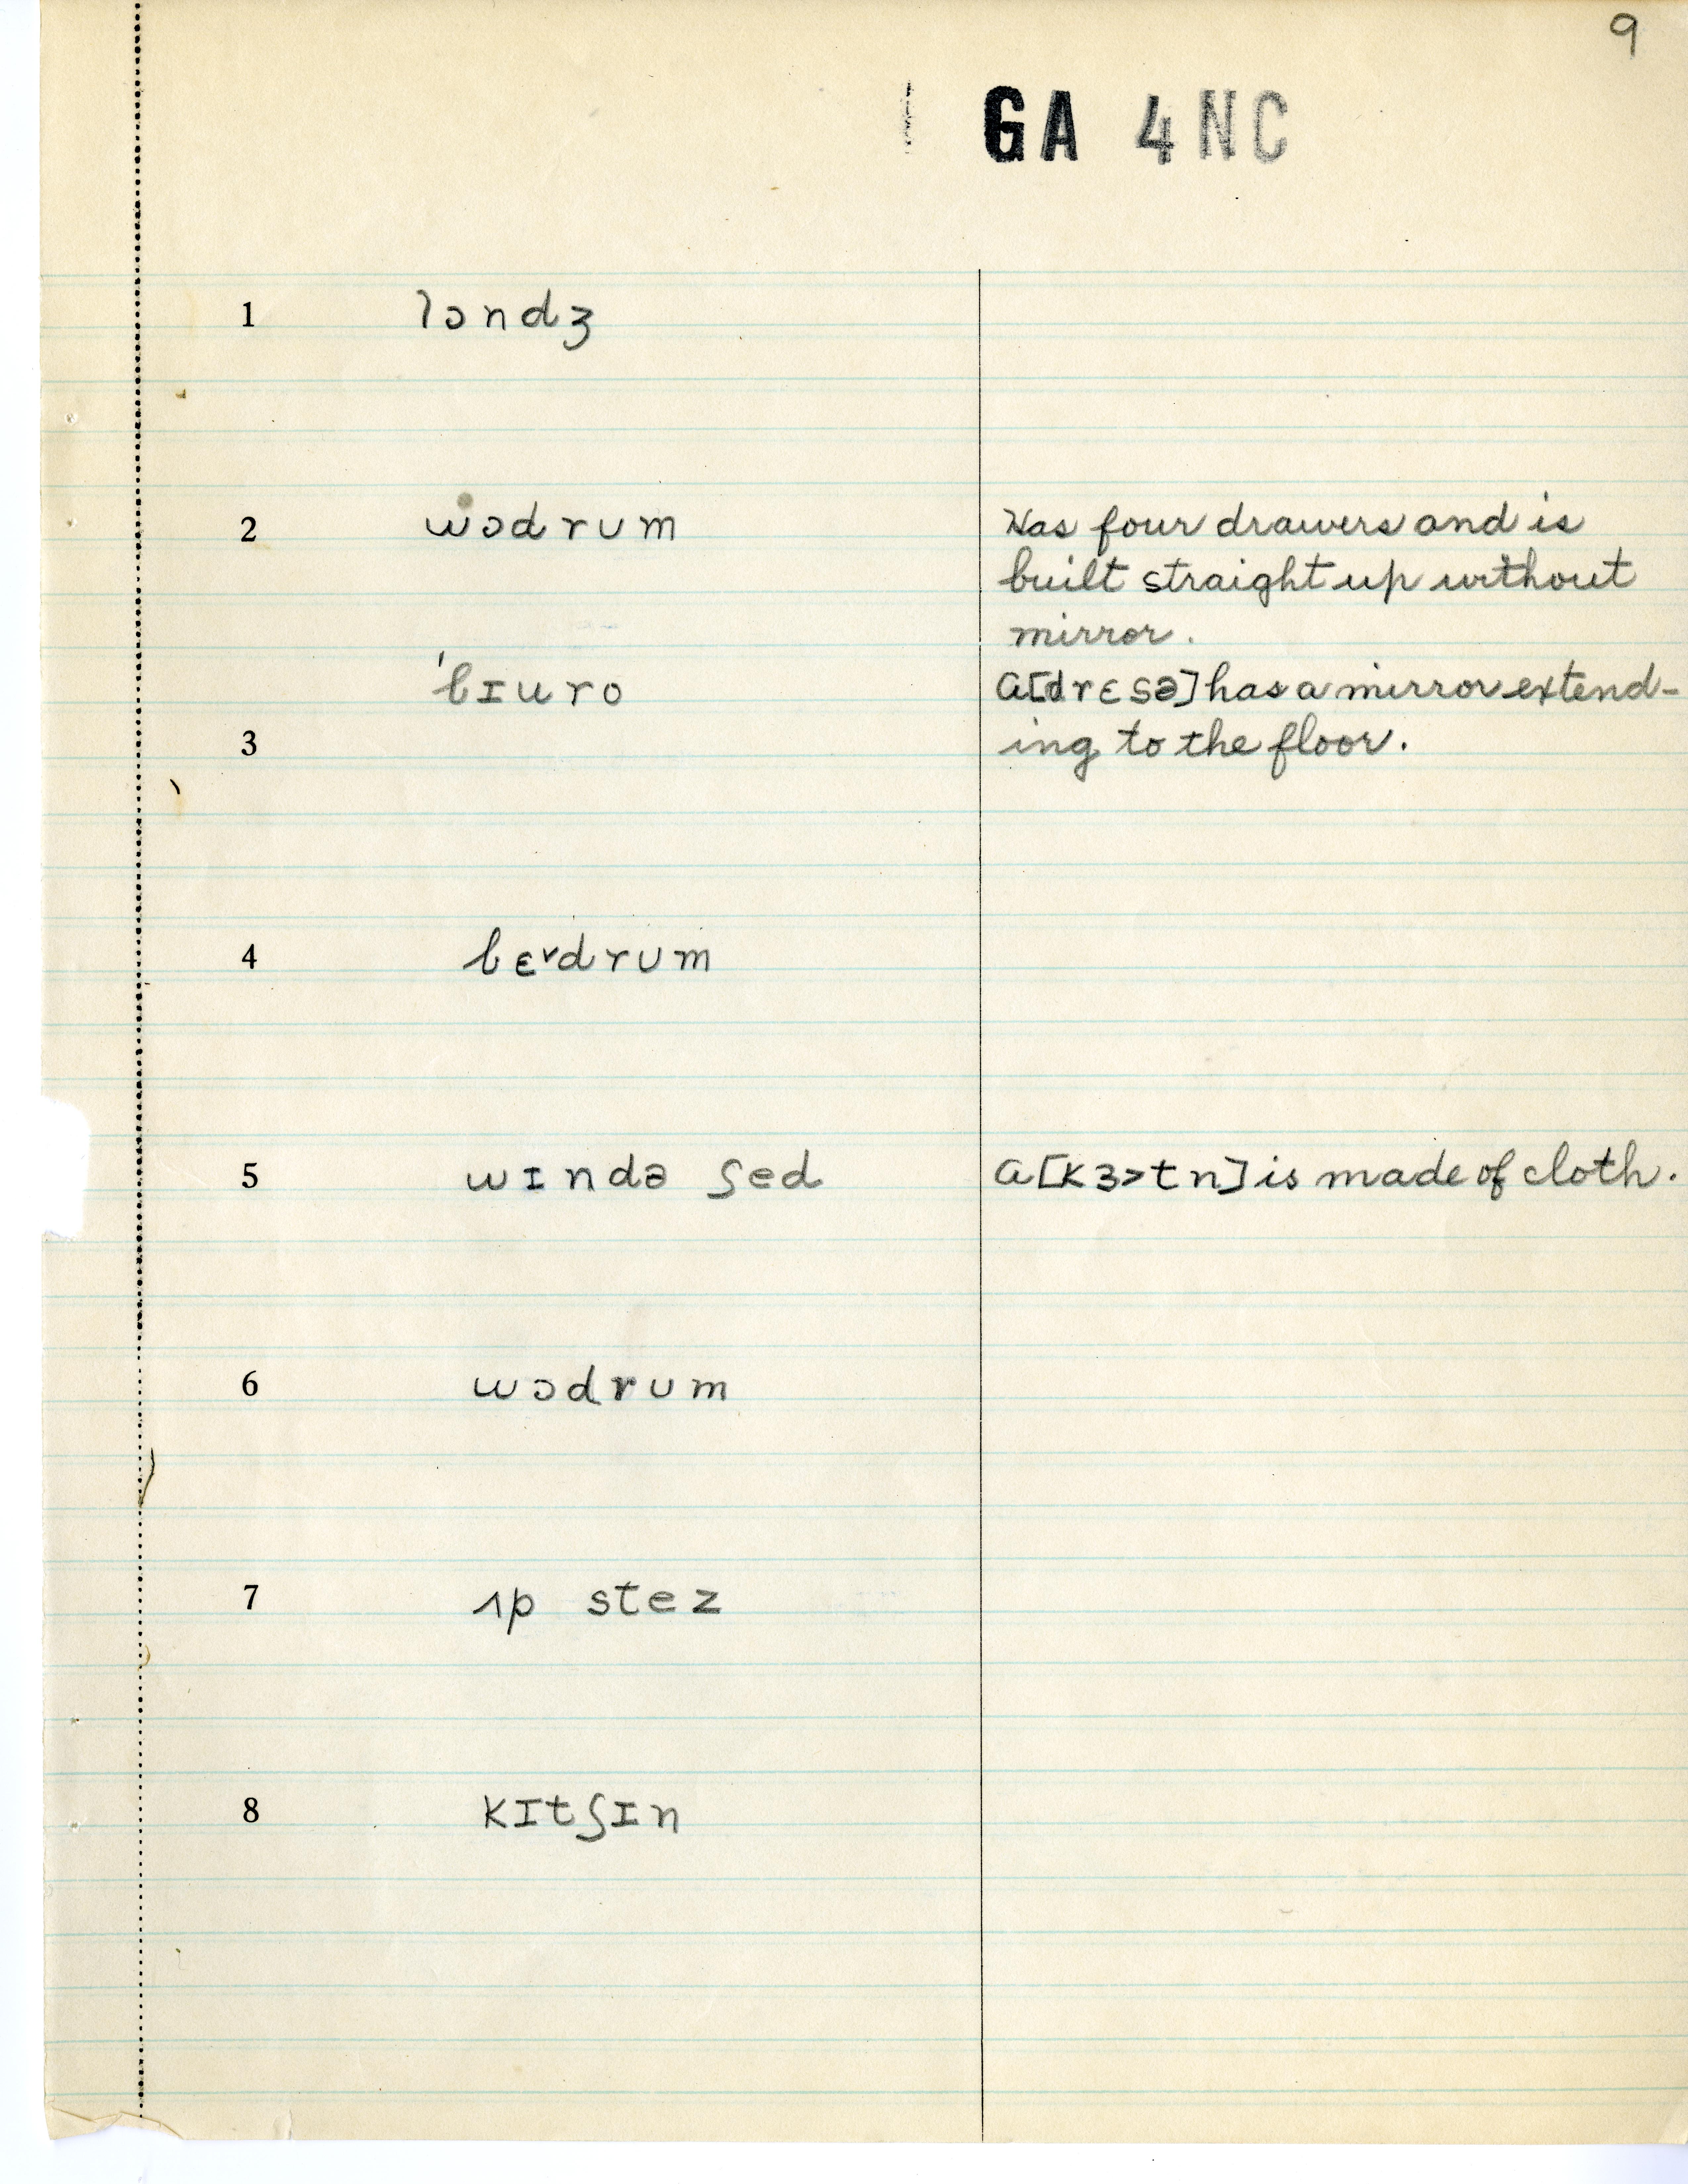 9
GA 4NC
1 lɔndʒ
2 wɔdrum Has four drawers and is
built straight up without
mirror.
ˈbɪuro a[drɛsə] has a mirror extend-
3 ing to the floor.
4 bɛ˅drum
5 wɪndə ʃed a[kɜ˃tn] is made of cloth.
6 wɔdrum
7 ʌp stez
8 kɪtʃɪn